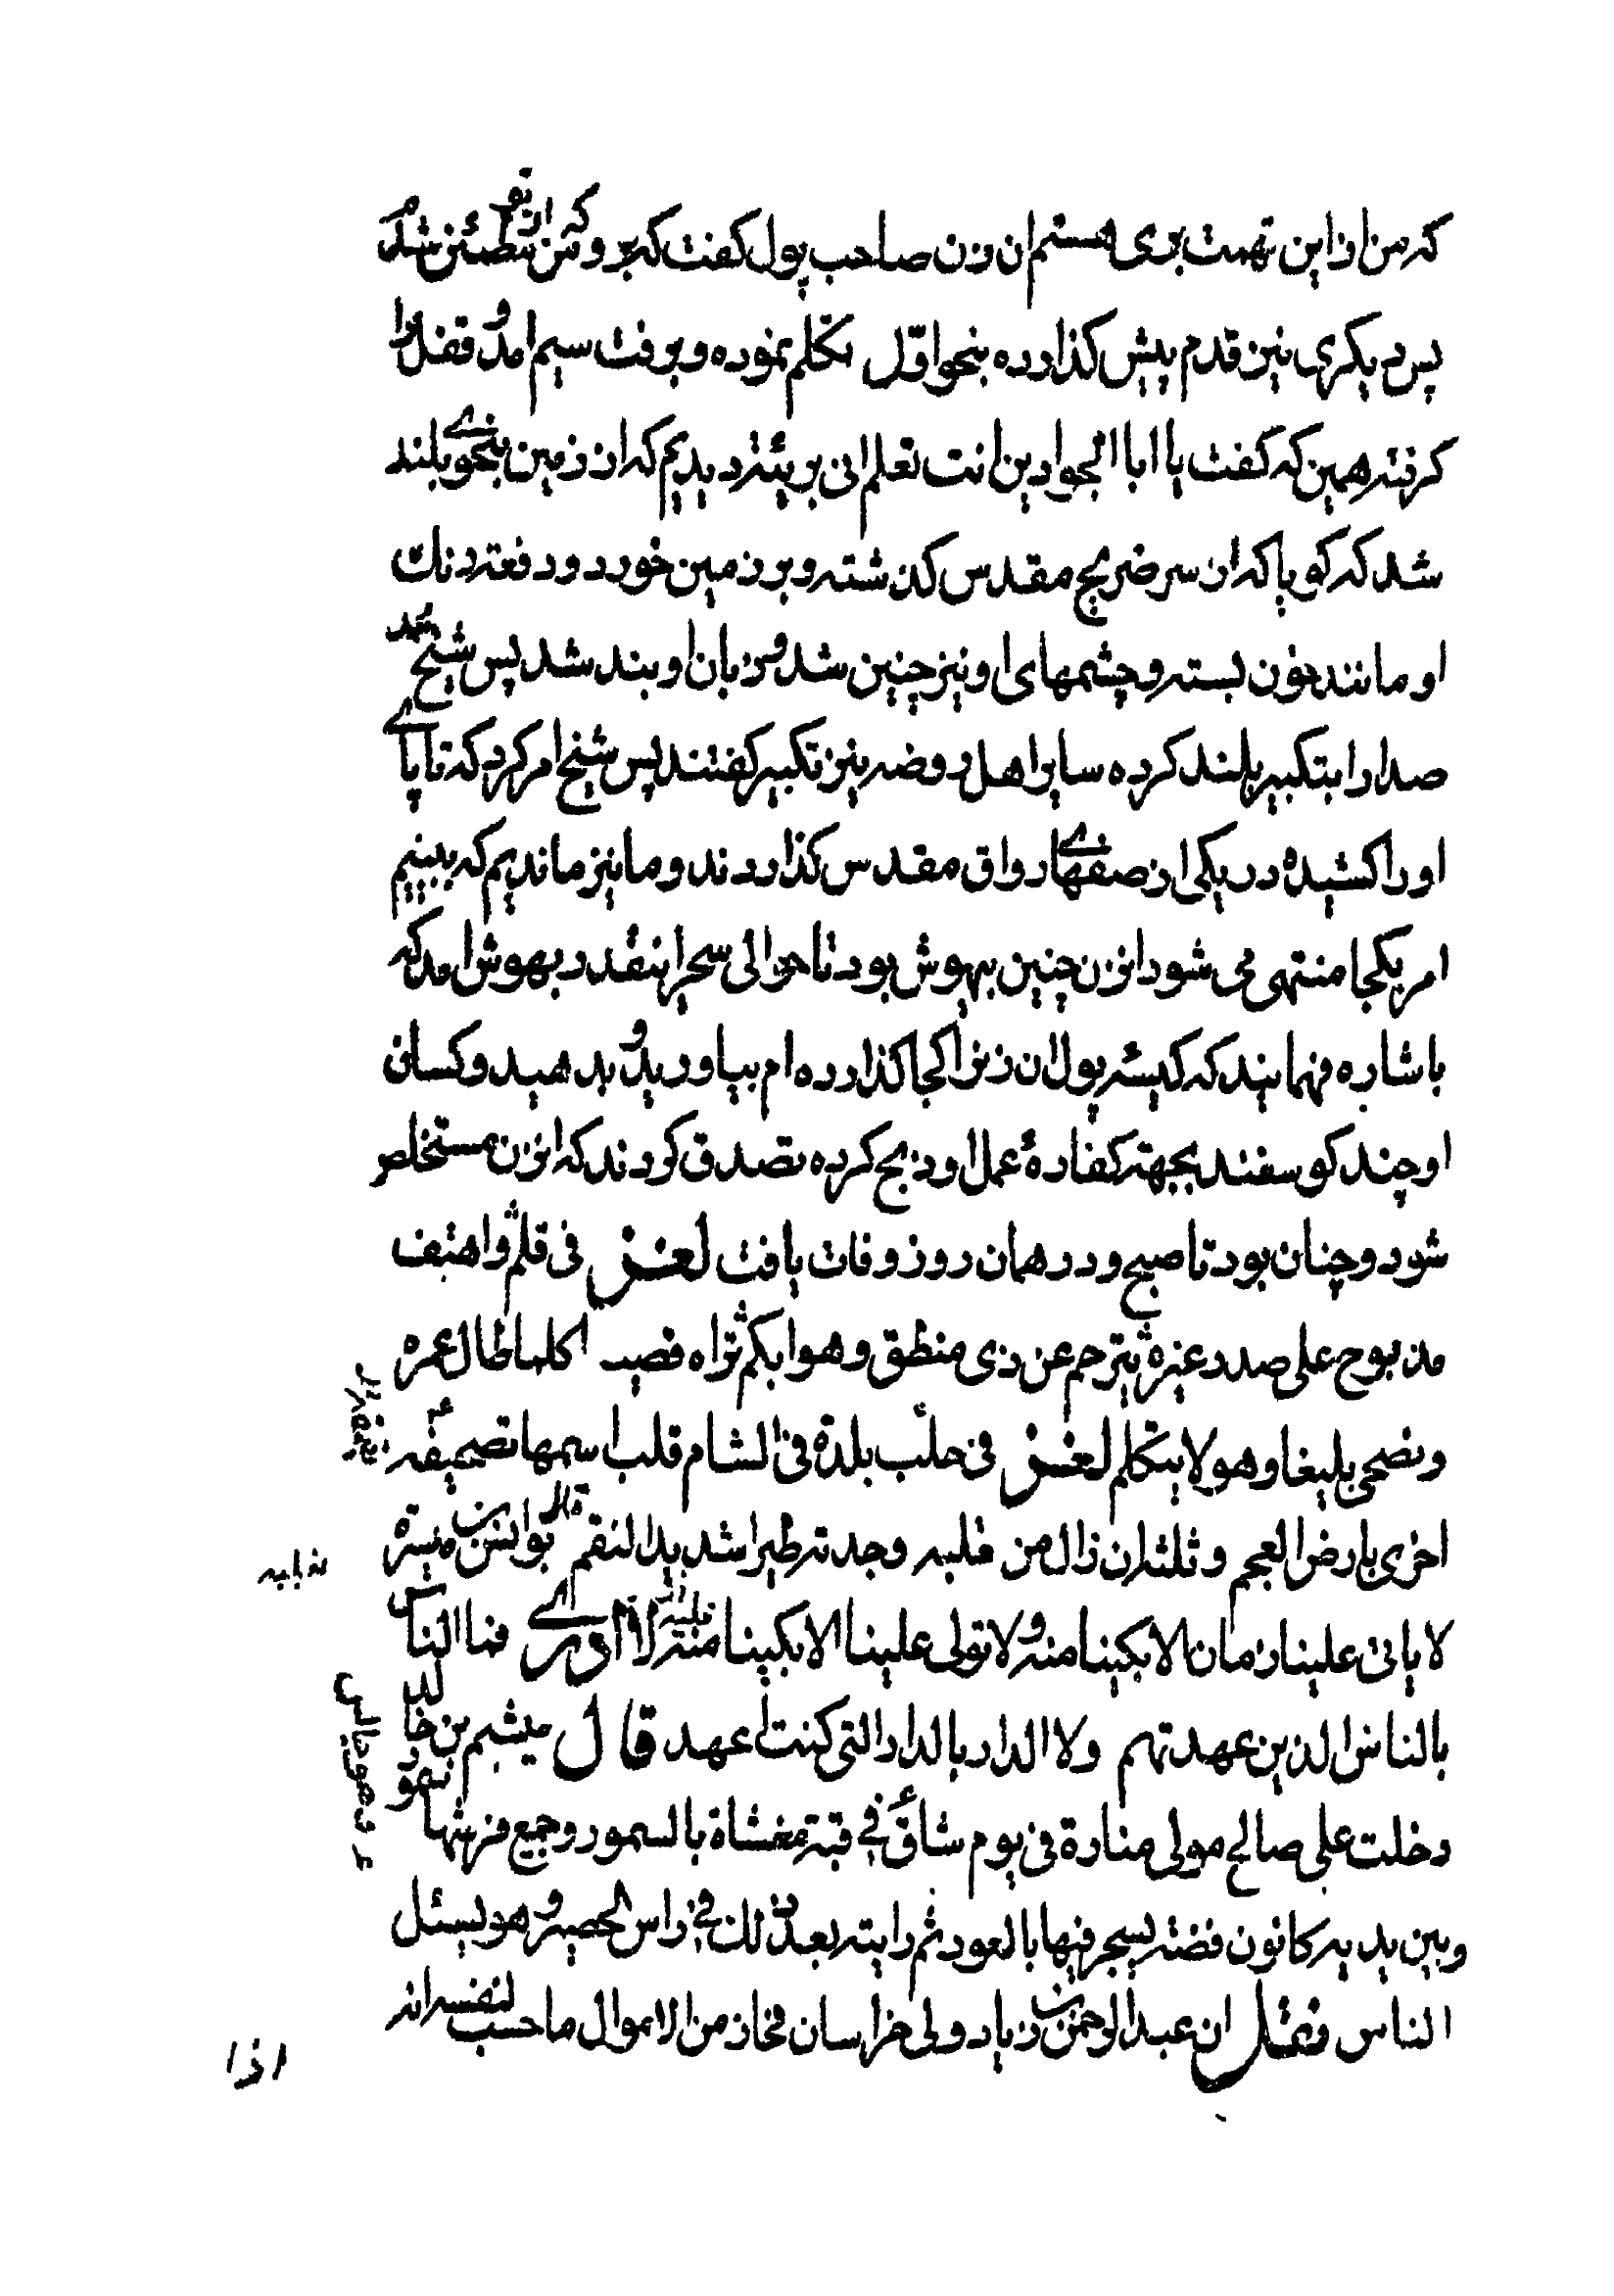 که من از این تهمت بری هستم ان زن صاحب پول کفت که برو که من از تو مطمئن شدم
پس دیکری نیز قدم پیش کذارده بنحو اوّل تکلم نموده و برفت سیم امد و قفل را
کرفته همین که کفت یا ابا الجوادین انت تعلم انی بریئة دیدیم که ان زمین بنحوی بلند
شد که کویا که ان سر ضریح مقدس کذشته و بر زمین خورد و دفعة رنك
او مانند خون بسته و چشمهای او نیز چنین شد و زبان او بند شد پس شیخ محمد
صدا را بتکبیر بلند کرده سایر اهل روضه نیز تکبیر کفتند پس شیخ امر کرد که تا پای
او را کشیده در یکی از صفهای رواق مقدس کذاردند و ما نیز ماندیم که ببینیم
امر بکجا منتهی می شود انزن چنین بیهوش بود تا حوالی سحر اینقدر بهوش امد که
باشاره فهمانید که کیسۀ پول ان زنرا کجا کذارده ام بیاورید و بدهید و کسان
او چند کوسفند بجهة کفارۀ عمل او ذبح کرده تصدق کردند که انزن مستخلص
شود و چنان بود تا صبح و در همان روز وفات یافت لغز فی قلم و اهیف
مذبوح علی صدر غیره یترجم عن ذی منطق و هو ابکم تراه قصیرا کلما طال عمره
و نضحی بلیغا و هو لا یتکلم لغز فی حلب بلدة فی الشام قلب اسمها تصحیفه
اخری بارض العجم و ثلثه ان زال من قلبه وجدته طیرا شدید النقم قال یونس بن میسرة
لا یاتی علینا زمان الا بکینا منه و لا تولی علینا الا بکینا علیه لا ادری فما الناس
بالناس الذین عهدتهم و لا الدار بالدار التی کنت اعهد قال میثم بن خالد
دخلت علی صالح مولی منارة فی یوم شات فی قبة مغشاة بالسمور و جمیع فرشها سمور
و بین یدیه کانون فضة یسجر فیها بالعود ثم رایته بعد ذلك فی راس الحصیر و هو یسئل
الناس و نقل ان عبد الرحمن بن زیاد ولی خراسان فحاز من الاموال ما حسب لنفسه انه
اذا